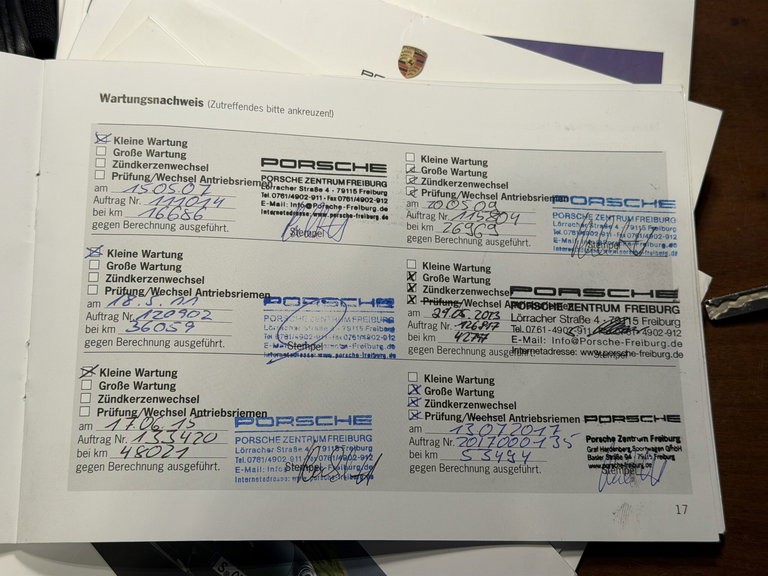 Wartungsnachweis (Zutreffendes bitte ankreuzen!)
Kleine Wartung
Große Wartung
Zündkerzenwechsel
Prüfung/Wechsel Antriebsriemen
am 15.05.07
Auftrag Nr. 111014
bei km 16686
gegen Berechnung ausgeführt.
PORSCHE
PORSCHE ZENTRUM FREIBURG
Lörracher Straße 4 - 79115 Freiburg
Tel. 0761/4902-911 - Fax 0761/4902-912
E-Mail: Info@Porsche-Freiburg.de
Internetadresse: www.porsche-freiburg.de
Stempel
Kleine Wartung
Große Wartung
Zündkerzenwechsel
Prüfung/Wechsel Antriebsriemen
am 20.05.09
Auftrag Nr. 115804
bei km 26969
gegen Berechnung ausgeführt.
PORSCHE
PORSCHE ZENTRUM FREIBURG
Lörracher Straße 4 - 79115 Freiburg
Tel. 0761/4902-911 - Fax 0761/4902-912
E-Mail: Info@Porsche-Freiburg.de
Kleine Wartung
Große Wartung
Zündkerzenwechsel
Prüfung/Wechsel Antriebsriemen
am 18.5.11
Auftrag Nr. 120902
bei km 36059
gegen Berechnung ausgeführt.
PORSCHE
PORSCHE ZENTRUM FREIBURG
Lörracher Straße 4 - 79115 Freiburg
Tel. 0761/4902-911 - Fax 0761/4902-912
E-Mail: Info@Porsche-Freiburg.de
Internetadresse: www.porsche-freiburg.de
Stempel
Kleine Wartung
Große Wartung
Zündkerzenwechsel
Prüfung/Wechsel Antriebsriemen
am 29.05.2013
Auftrag Nr.
bei km
gegen Berechnung ausgeführt.
PORSCHE
PORSCHE ZENTRUM FREIBURG
Lörracher Straße 4 - 79115 Freiburg
Tel. 0761-4902-911
E-Mail: Info@Porsche-Freiburg.de
Internetadresse: www.porsche-freiburg.de
Stempel
Kleine Wartung
Große Wartung
Zündkerzenwechsel
Prüfung/Wechsel Antriebsriemen
am 17.06.15
Auftrag Nr. 133420
bei km 48021
gegen Berechnung ausgeführt.
PORSCHE
PORSCHE ZENTRUM FREIBURG
Lörracher Straße 4 - 79115 Freiburg
Tel. 0761/4902-911 - Fax 0761/4902-912
E-Mail: Info@Porsche-Freiburg.de
Internetadresse: www.porsche-freiburg.de
Stempel
Kleine Wartung
Große Wartung
Zündkerzenwechsel
Prüfung/Wechsel Antriebsriemen
am 13.07.2017
Auftrag Nr. 2017000135
bei km 53494
gegen Berechnung ausgeführt.
PORSCHE
Porsche Zentrum Freiburg
Graf Hardenberg Sportwagen GmbH
Basler Straße 94 - 79115 Freiburg
www.porsche-freiburg.de
Stempel
17